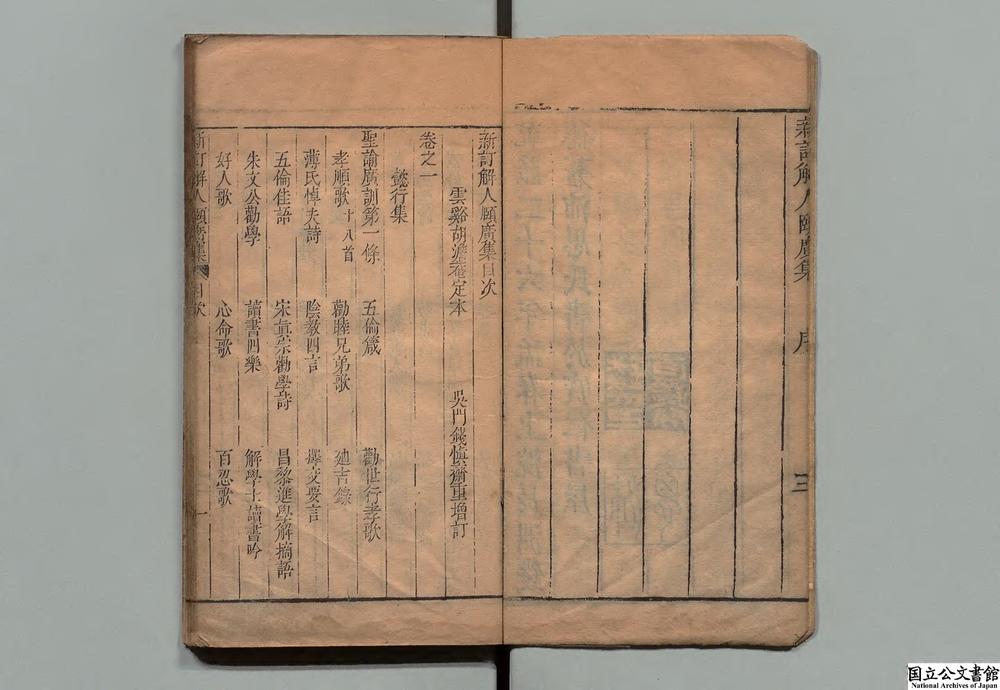 新訂解人頤廣集 序 三
新訂解人頤廣集目次
雲谿胡澹菴定本 吳門錢慎齋重增訂
卷之一
懿行集
聖諭廣訓第一條 五倫箴 勸世行孝歌
孝順歌十八首 勸睦兄弟歌 迪吉錄
薄氏悼夫詩 陰教四言 擇交要言
五倫佳語 宋眞宗勸學詩 昌黎進學解摘語
朱文公勸學 讀書四樂 解學士讀書吟
好人歌 心命歌 百忍歌
新訂解人頤廣集 目次 一
国立公文書館
National Archives of Japan